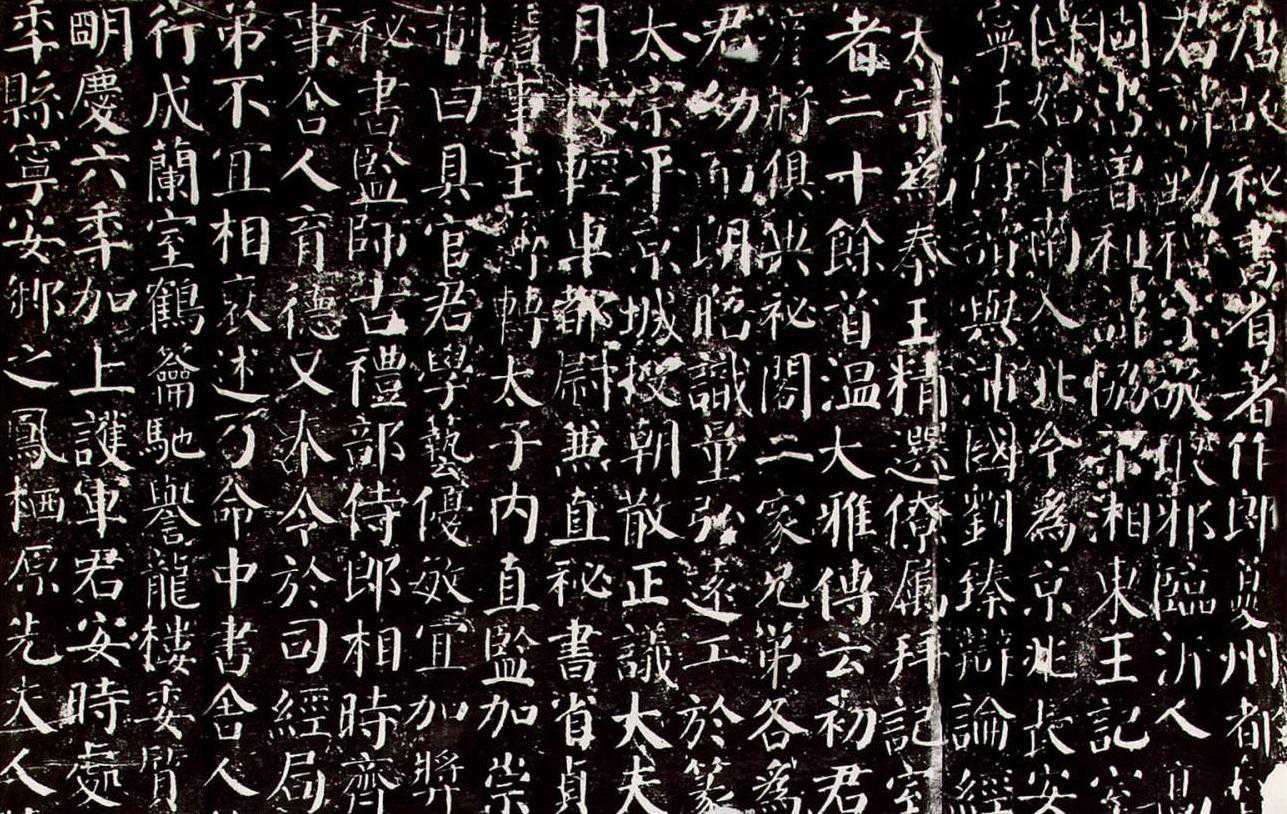 唐故祕書省著作郎夔州都督
君諱勤禮字敬琅邪臨沂人高
國常曾祖諱協梁湘東王記室
傳始自南入北今為京兆長安
寧王侍讀與沛國劉臻辯論經
太宗為秦王精選僚屬拜記室
者二十餘首溫大雅傳云初君
彥將俱典祕閣二家兄弟各為
君幼而朗晤識量弘遠工於篆
太宗平京城授朝散正議大夫
月授輕車都尉兼直祕書省貞
詹事主簿轉太子內直監加崇
制曰具官君學藝優敏宜加獎
祕書監師古禮部侍郎相時齊
事舍人育德又奉令於司經局
弟不宜相褒述乃命中書舍人
行成蘭室鶴籥馳譽龍樓委質
明慶六年加上護軍君安時處
年縣寧安鄉之鳳栖原先夫人